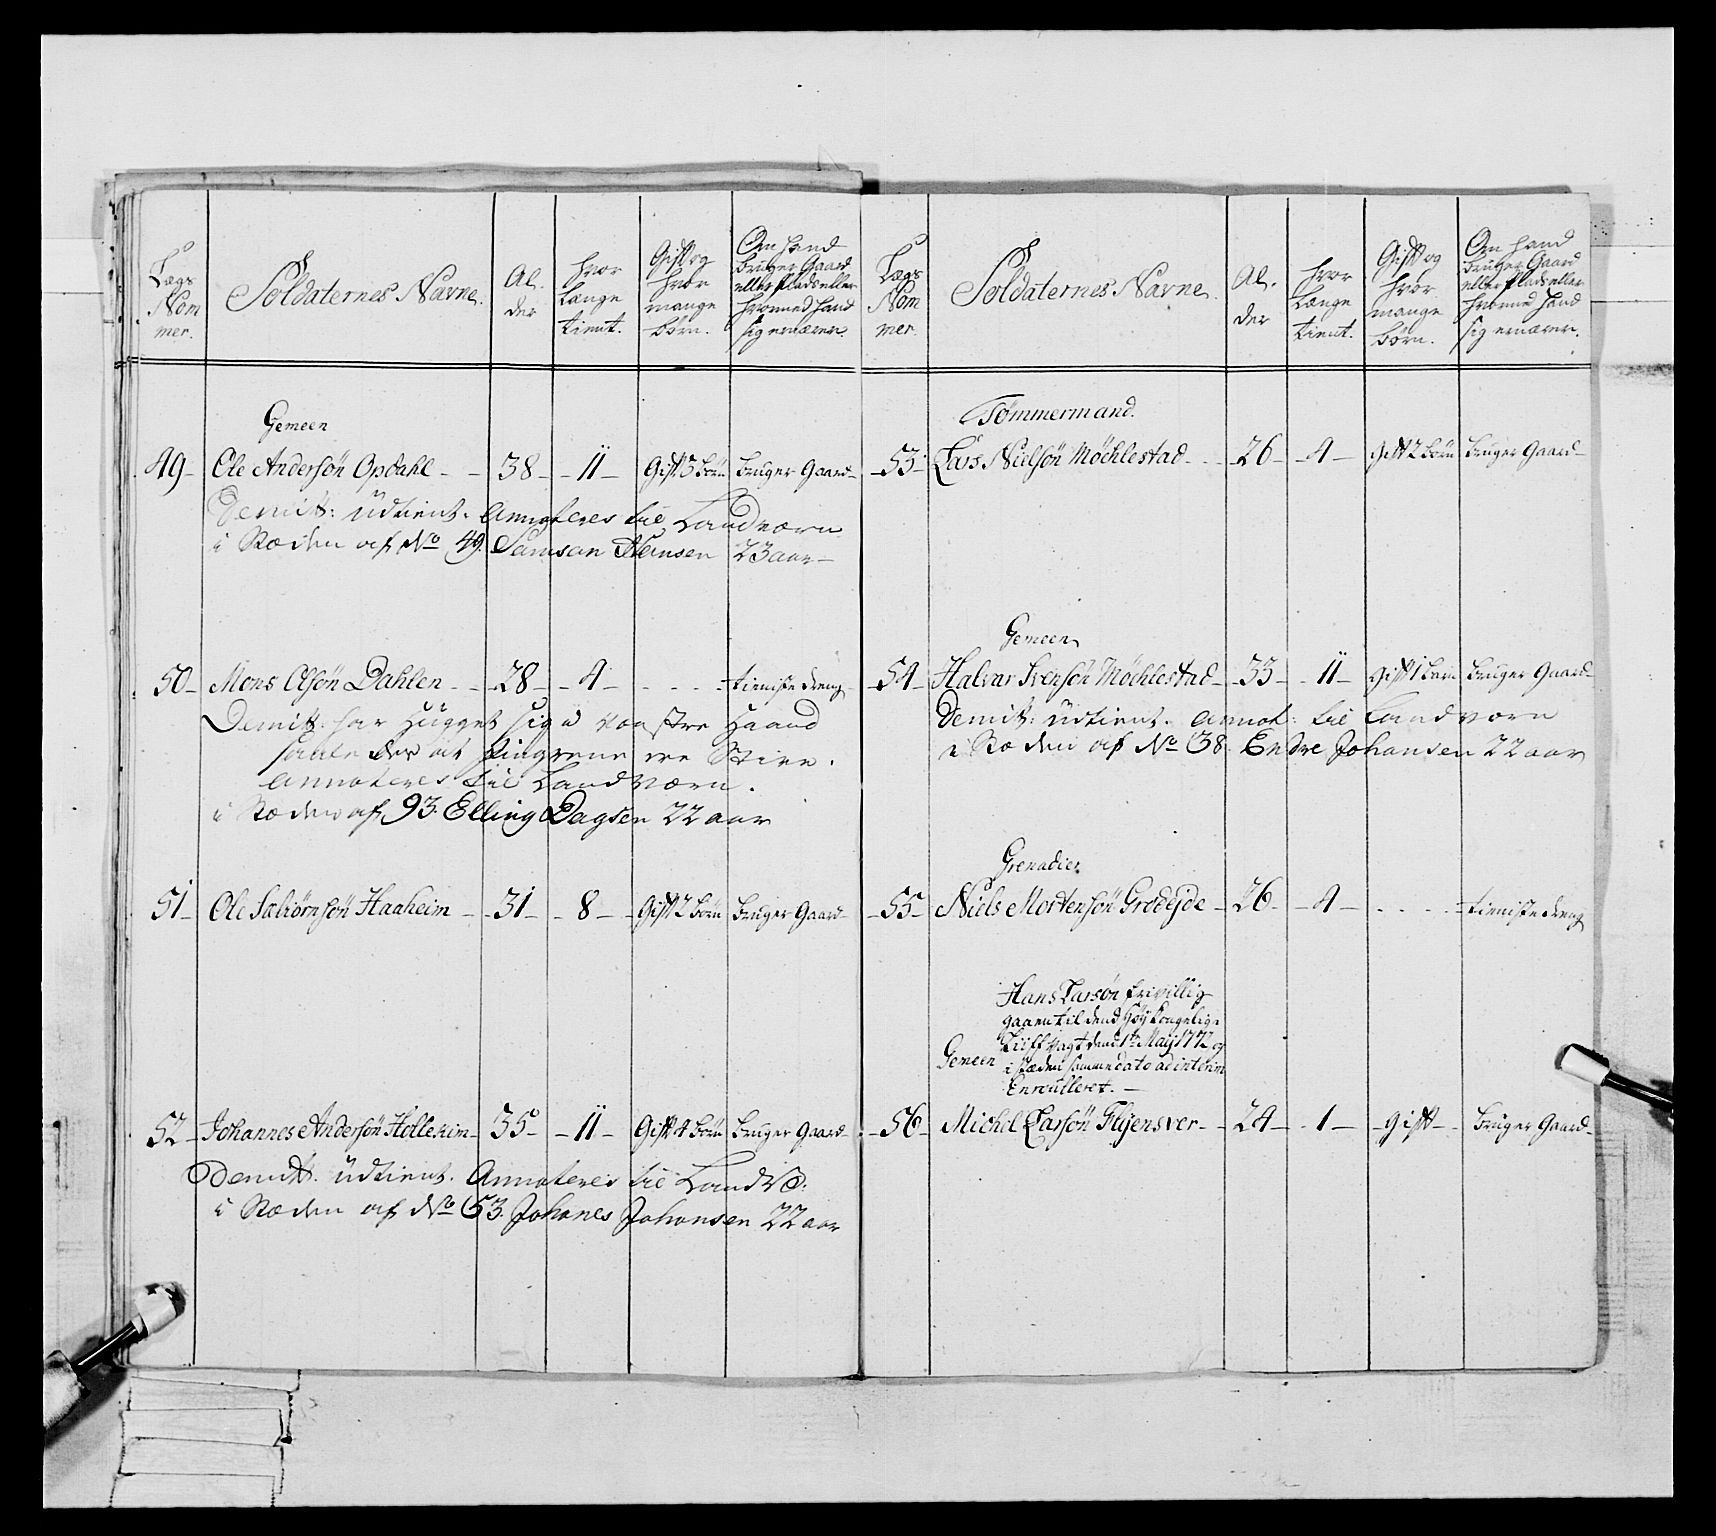 Lægs
Nom
mer.
Soldaternes Navne.
Al.
der
hvor
Længe
tient.
Gift og
hvor
mange
børn.
Om hand
bruger Gaard
eller Plads eller
hvormed hand
sig ernærer.
Gemeen
49 Ole Andersön Opdahl 38 11 Gift 3 börn bruger Gaard
Demit: udtient. Annoteres til Landværn
i Stæden af No 49. Samson Hansen 23 aar
50 Mons Olsön Dahlen 28 4 tieniste dreng
Demit: har hugget sig i venstre Haand
saaledes at Fingrene ere Stive.
Annoteres til Landværn.
i Stæden af 93. Elling Dagsen 22 aar
51 Ole Sæbiørnsön Haaheim 31 8 Gift 2 börn bruger Gaard
52 Johannes Andersön Hollekim 35 11 Gift 4 börn bruger Gaard
Demit. udtient. Annoteres til Landv:
i Stæden af No 53. Johanes Johansen 22 aar
Lægs
Nom
mer.
Soldaternes Navne.
Al.
der
hvor
Længe
tient.
Gift og
hvor
mange
børn.
Om hand
bruger Gaard
eller Plads eller
hvormed hand
sig ernærer.
Tømmermand.
53 Lars Nielsön Möchlestad 26 4 gift 2 börn bruger Gaard
Gemeen
54 Halvar Svensön Möchlestad 33 11 gift 1 barn bruger Gaard
Demit: udtient. Annot: til Landværn
i Stæden af No 38. Endre Johansen 22 aar
Grenadier
55 Niels Mortensön Grødejde 26 4 tieniste dreng
Hans Larsön frivillig
gaaen til dend høy Kongelige
Liiff vagt den 1te Maij 1772 og
Gemeen i stæden samme dato ad interim
Enroulleret.
56 Michel Larsön Flÿensver 24 1 gift bruger Gaard